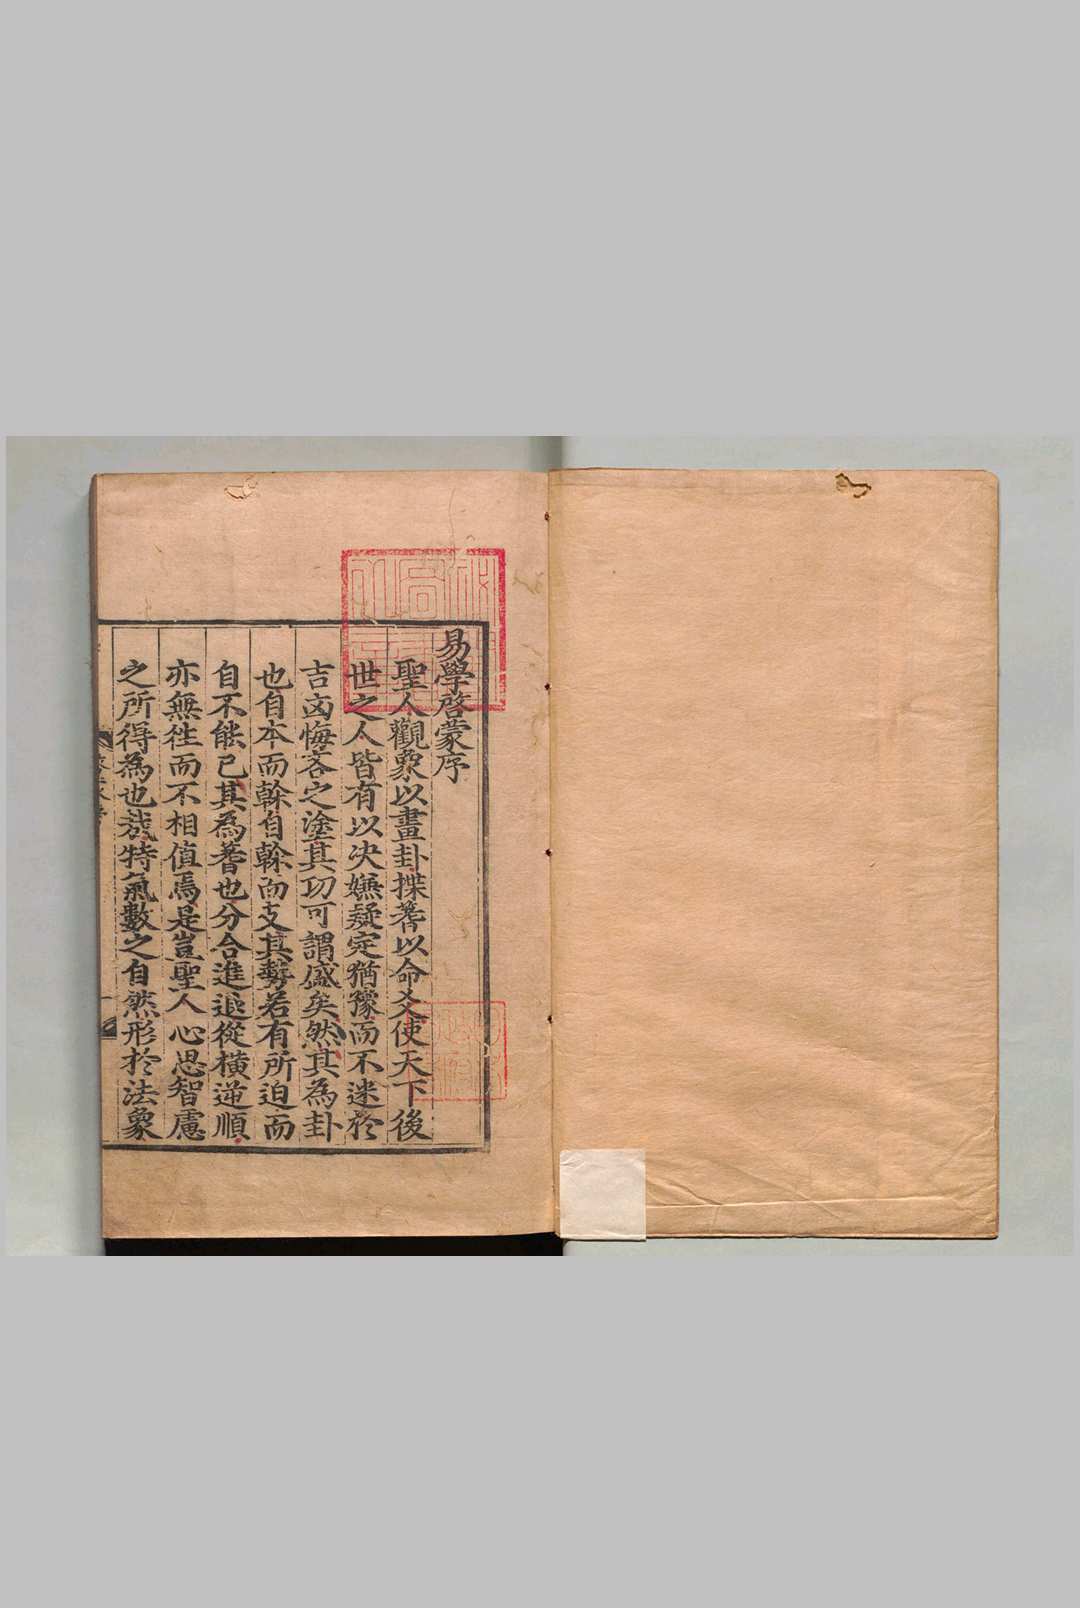 易學啓蒙序
聖人觀象以畫卦揲蓍以命爻使天下後
世之人皆有以決嫌疑定猶豫而不迷於
吉凶悔吝之塗其功可謂盛矣然其為卦
也自本而榦自榦而支其勢若有所迫而
自不能已其為蓍也分合進退從橫逆順
亦無往而不相值焉是豈聖人心思智慮
之所得為也哉特氣數之自然形於法象